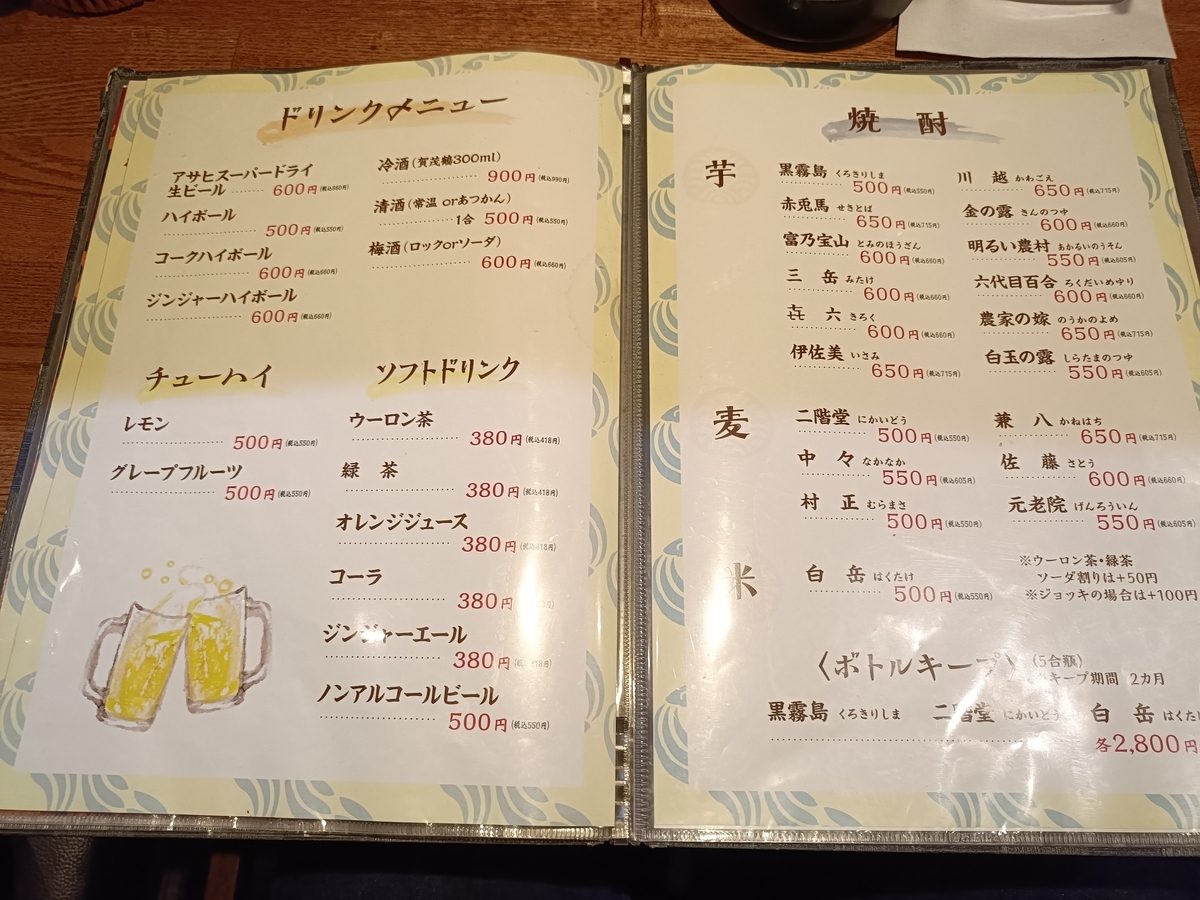 ドリンクメニュー
アサヒスーパードライ
生ビール ……… 600円(税込660円)
ハイボール
……………… 500円(税込550円)
コークハイボール
……………… 600円(税込660円)
ジンジャーハイボール
……………… 600円(税込660円)
冷酒(賀茂鶴300ml)
……………… 900円(税込990円)
清酒(常温 orあつかん)
……………1合 500円(税込550円)
梅酒(ロックorソーダ)
……………… 600円(税込660円)
チューハイ
レモン
……………… 500円(税込550円)
グレープフルーツ
……………… 500円(税込550円)
ソフトドリンク
ウーロン茶
……………… 380円(税込418円)
緑 茶
……………… 380円(税込418円)
オレンジジュース
……………… 380円(税込418円)
コーラ
……………… 380円
ジンジャーエール
……………… 380円
ノンアルコールビール
……………… 500円(税込550円)
焼 酎
芋
黒霧島 くろきりしま
……… 500円(税込550円)
赤兎馬 せきとば
……… 650円(税込715円)
富乃宝山 とみのほうざん
……… 600円(税込660円)
三 岳 みたけ
……… 600円(税込660円)
㐂 六 きろく
……… 600円(税込660円)
伊佐美 いさみ
……… 650円(税込715円)
川 越 かわごえ
……… 650円(税込715円)
金の露 きんのつゆ
……… 600円(税込660円)
明るい農村 あかるいのうそん
……… 550円(税込605円)
六代目百合 ろくだいめゆり
……… 600円(税込660円)
農家の嫁 のうかのよめ
……… 650円(税込715円)
白玉の露 しらたまのつゆ
……… 550円(税込605円)
麦
二階堂 にかいどう
……… 500円(税込550円)
中 々 なかなか
……… 550円(税込605円)
村 正 むらまさ
……… 500円(税込550円)
兼 八 かねはち
……… 650円(税込715円)
佐 藤 さとう
……… 600円(税込660円)
元老院 げんろういん
……… 550円(税込605円)
米
白 岳 はくたけ
……… 500円(税込550円)
※ウーロン茶・緑茶
ソーダ割りは+50円
※ジョッキの場合は+100円
〈ボトルキープ〉(5合瓶)
キープ期間 2カ月
黒霧島 くろきりしま 二階堂 にかいどう 白 岳 はくたけ
……………… 各2,800円